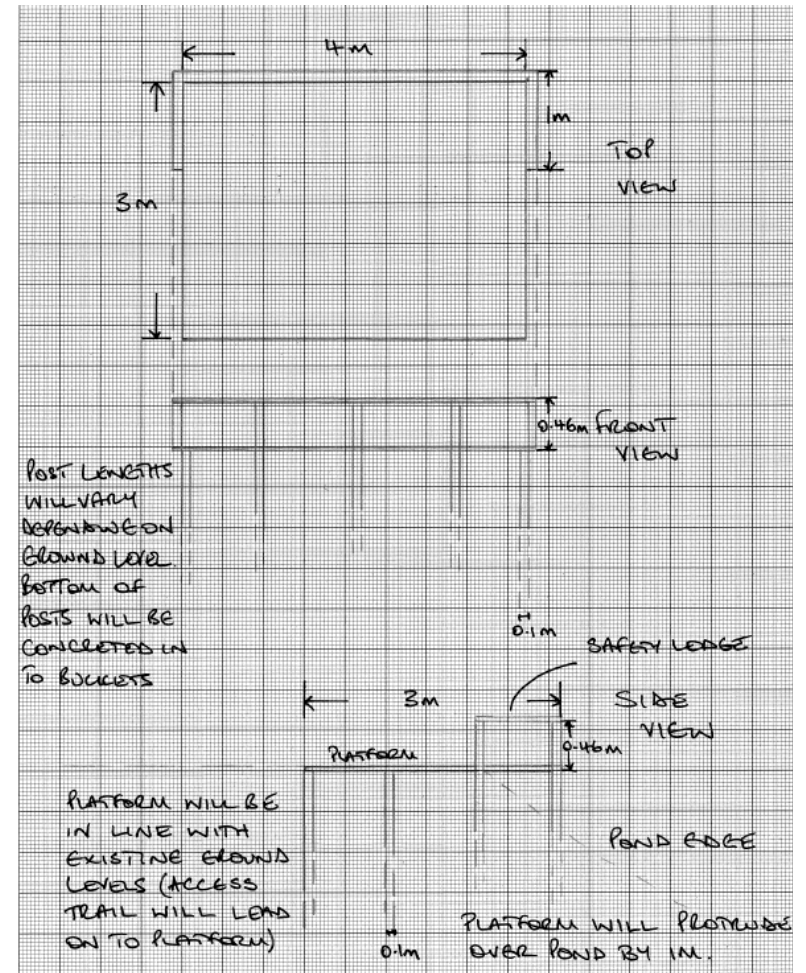 4m
1m
TOP
VIEW
3m
0.46m FRONT
VIEW
POST LENGTHS
WILL VARY
DEPENDING ON
GROUND LEVEL.
BOTTOM OF
POSTS WILL BE
CONCRETED IN
TO BUCKETS
0.1m
SAFETY LEDGE
3m
SIDE
VIEW
0.46m
PLATFORM
PLATFORM WILL BE
IN LINE WITH
EXISTING GROUND
LEVELS (ACCESS
TRAIL WILL LEAD
ON TO PLATFORM)
POND EDGE
0.1m
PLATFORM WILL PROTRUDE
OVER POND BY 1M.